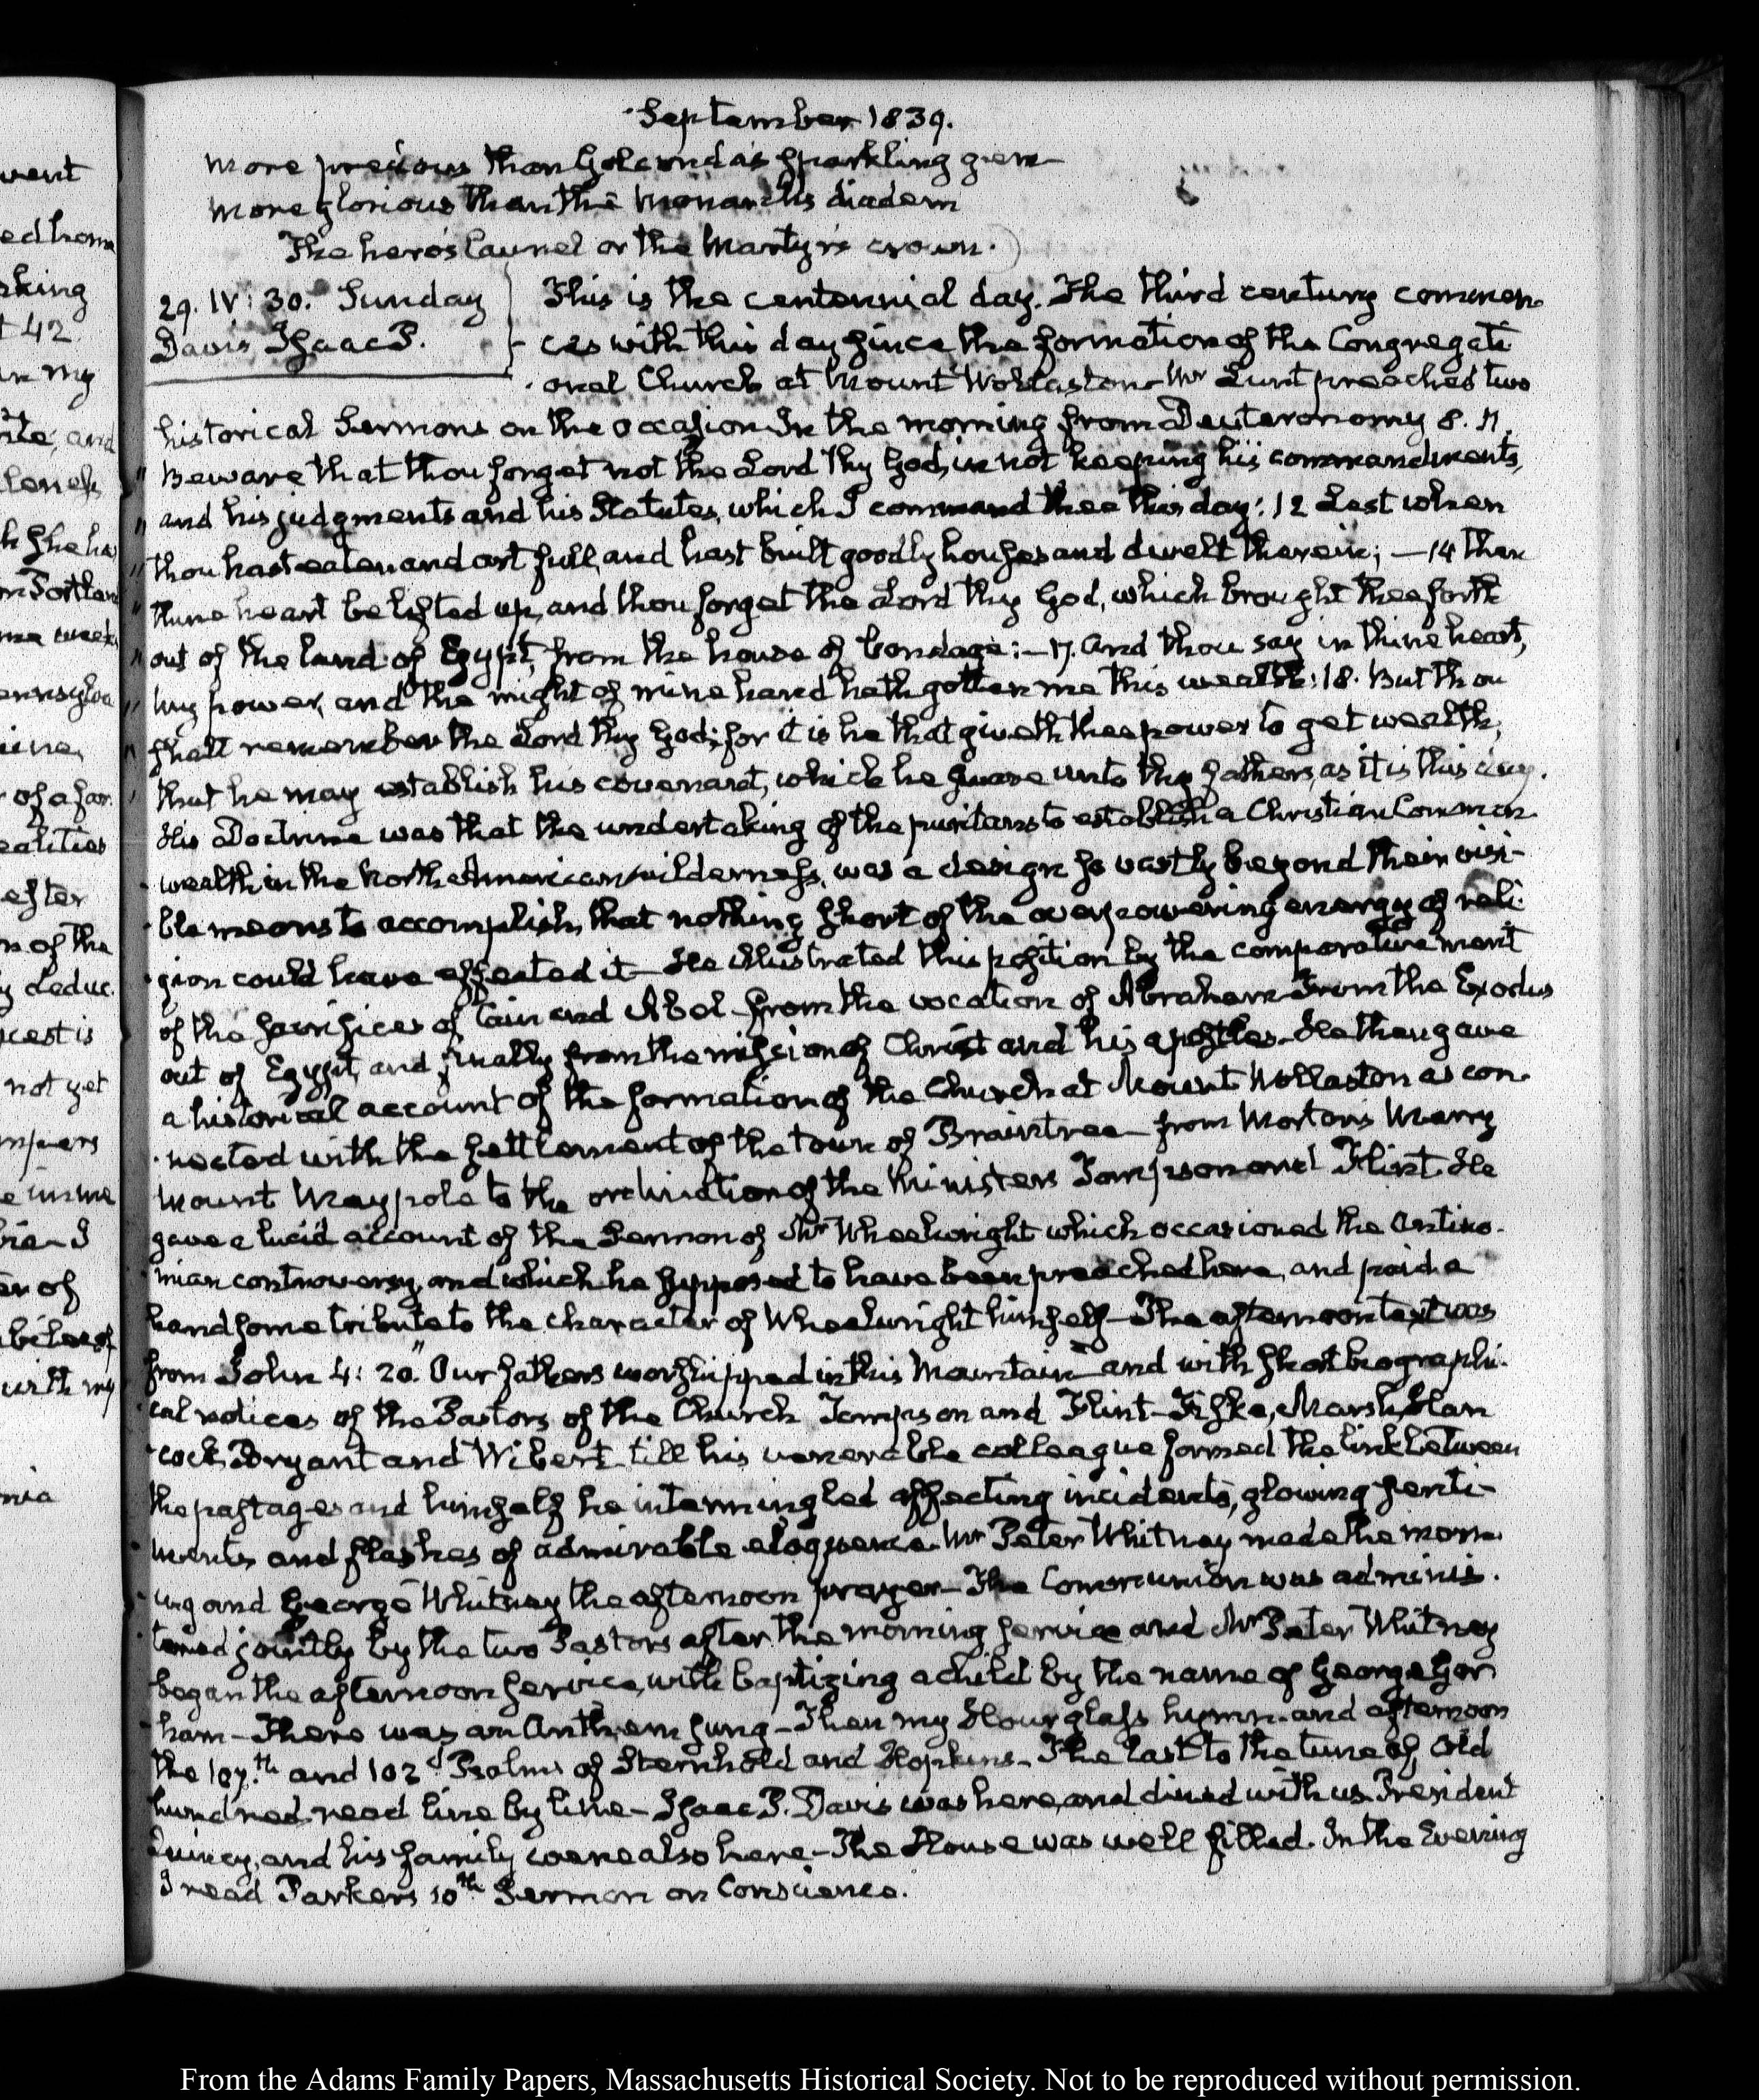 September 1839.
More precious than Golconda's sparkling gem
More glorious than the Monarch's diadem
The hero's laurel or the Martyr's crown.
29. IV: 30. Sunday
Davis Isaac P.
This is the centennial day. The third century commen-
ces with this day since the formation of the Congregati
onal Church at Mount Wollaston—Mr Lunt preached two
historical Sermons on the occasion In the morning from Deuteronomy 8. 11.
" Beware that thou forget not the Lord thy God, in not keeping his commandments,
" and his judgments and his Statutes, which I command thee this day: 12 Lest when
" thou hast eaten and art full, and hast built goodly houses and dwelt therein; —14 Then
" thine heart be lifted up, and thou forget the Lord thy God, which brought thee forth
" out of the land of Egypt, from the house of bondage:—17. And thou say in thine heart,
" My power, and the might of mine hand hath gotten me this wealth: 18. But thou
" shalt remember the Lord thy God; for it is he that giveth thee power to get wealth,
that he may establish his covenant, which he sware unto thy fathers, as it is this day.
His Doctrine was that the undertaking of the puritans to establish a Christian Common-
wealth in the North American wilderness, was a design so vastly beyond their visi-
ble means to accomplish, that nothing short of the overpowering energy of reli-
gion could have effected it—He illustrated this position by the comparative merit
of the sacrifices of Cain and Abel—from the vocation of Abraham—From the Exodus
out of Egypt, and finally from the mission of Christ and his apostles—He then gave
a historical account of the formation of the Church at Mount Wollaston as con-
nected with the settlement of the town of Braintree—from Morton's Merry
Mount Maypole to the ordination of the Ministers Tompson and Flint. He
gave a lucid account of the Sermon of Mr Wheelwright which occasioned the Antino-
mian controversy, and which he supposed to have been preached here, and paid a
handsome tribute to the character of Wheelwright himself—The afternoon text was
from John 4: 20. "Our fathers worshipped in this Mountain—and with short biographi-
cal notices of the Pastors of the Church Tompson and Flint—Fiske, Marsh, Han
cock, Bryant and Wibert till his venerable colleague formed the link between
the past ages and himself he intermingled affecting incidents, glowing senti-
ments and flashes of admirable eloquence. Mr Peter Whitney made the morn
ing and George Whitney the afternoon prayer—The Communion was adminis-
tered jointly by the two Pastors after the morning service and Mr Peter Whitney
began the afternoon service, with baptizing a child by the name of George Gor
ham—There was an Anthem sung—Then my Hour glass hymn. and afternoon
the 107.th and 102d Psalms of Sternhold and Hopkins—The last to the tune of Old
hundred read line by line—Isaac P. Davis was here, and dined with us. President
Quincy, and his family were also here—The House was well filled. In the Evening
I read Parker's 10th Sermon on Conscience.
From the Adams Family Papers, Massachusetts Historical Society. Not to be reproduced without permission.